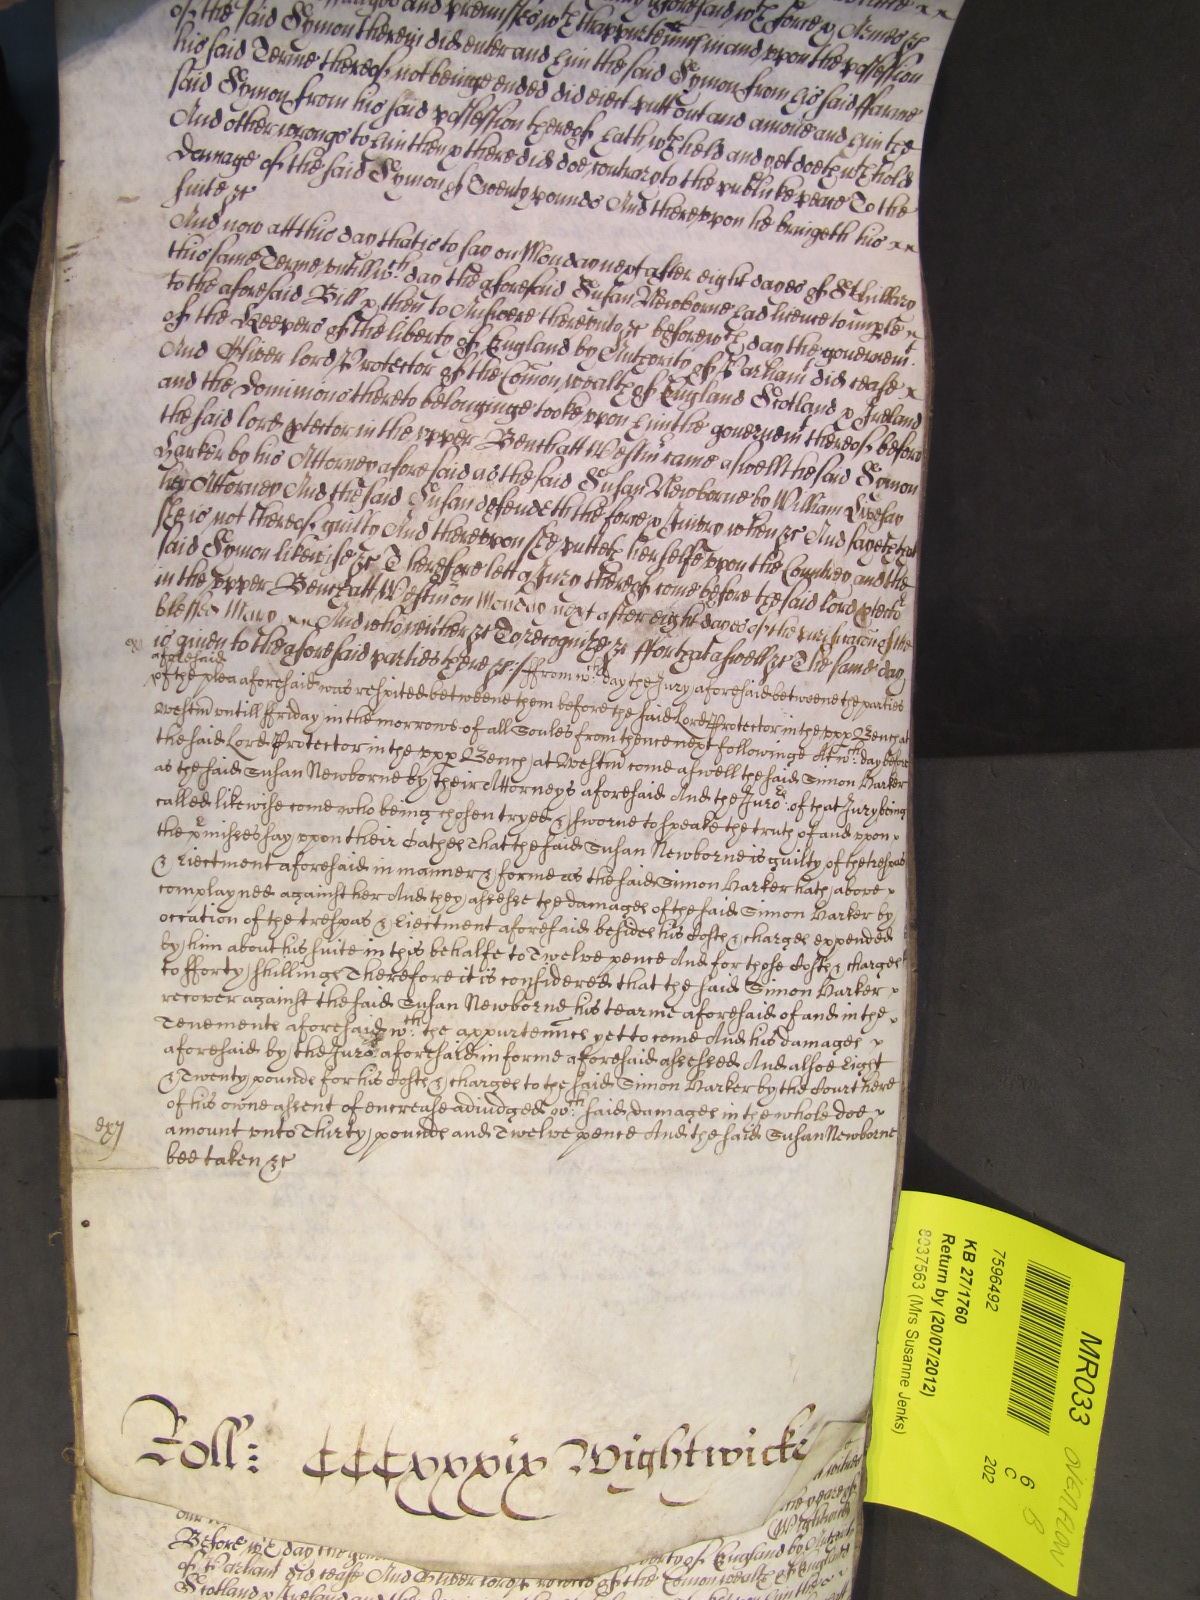 of the said Symon therein did enter and him the said Symon from his said ffarme
his said Terme thereof not beinge ended did eiect putt out and amove and him the
said Symon from his said possession thereof hath wth held and yet doeth wth hold
And other wrongs to him then & there did doe contrary to the publike peace To the
Damage of the said Symon of Twenty pounds And thereupon he bringeth his
suite &c
And now att this day that is to say on Monday next after eight dayes of St Hillary
this same Terme untill wch day the aforesaid Susan Newborne had licence to imple
to the aforesaid Bill & then to Answere thereunto &c before wch day the governemt
of the Keepers of the liberty of England by Authority of Parliamt did cease
And Oliver lord Protector of the Comon wealth of England Scotland & Ireland
and the Dominions thereto belonginge tooke uppon him the governemt thereof before
the said lord ptector in the upper Bench att Westm came aswell the said Symon
Harker by his Attorney aforesaid as the said Susan Newborne by William Livesay
her Attorney And the said Susan defendeth the force & Iniury when &c And sayeth that
shee is not thereof guilty And thereupon shee putteth herselfe upon the Countrey and the
said Symon likewise &c Therefore lett a Jury thereof come before the said lord ptector
in the upper Bench att Westm on Monday next after eight dayes of the purificacon of the
blessed Mary And who neither &c To recognize &c ffor that aswell &c The same day
is given to the aforesaid parties there &c:/ ffrom wch: day the Jury aforesaid betweene the parties
aforesaid
of the plea aforesaid was respited betweene them before the said Lord Protector in the upp Bench at
Westm untill ffriday in the morrowe of all Soules from thence next followinge At wch: day before
the said Lord Protector in the upp Bench at Westm come aswell the said Simon Harker
as the said Susan Newborne by their Attorneys aforesaid And the Juro: of that Jury being
called likewise come who being chosen tryed & sworne to speake the truth of and uppon
the pmisses say uppon their Oathes That the said Susan Newborne is guilty of the trespas
& Eiectment aforesaid in manner & forme as the said Simon Harker hath above
complayned against her And they assesse the damages of the said Simon Harker by
occation of the trespas & Eiectment aforesaid besides his Costs & charges expended
by him about his suite in this behalfe to Twelve pence And for those Costs & charges
to fforty shillings Therefore it is considered that the said Simon Harker
recover against the said Susan Newborne his tearme aforesaid of and in the
Tenements aforesaid wth: the appurtennces yet to come And his damages
aforesaid by the Juro: aforesaid in forme aforesaid assessed And alsoe Eight
& Twenty pounds for his Costs & charges to the said Simon Harker by the Court here
of his owne assent of encrease adiudged wch: said damages in the whole doe
amount unto Thirty pounds and Twelve pence And the said Susan Newborne
bee taken &c
Roll: CCCxxxix Wightwicke
Before wch day the
of Parliamt did cease And Oliver lord of the Comon wealth of England
MR033
OVERFLOW
7596492
6
C
202
KB 27/1760
Return by (20/07/2012)
8037563 (Mrs Susanne Jenks)